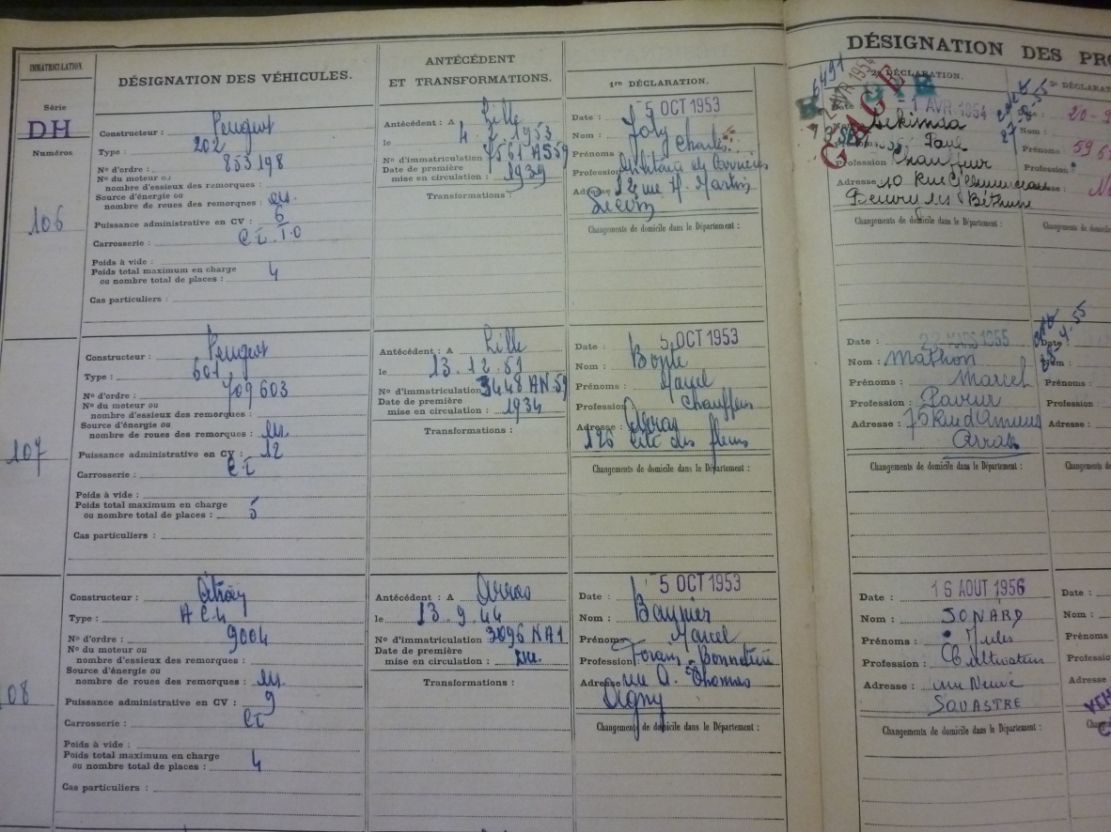 IMMATRICULATION
DÉSIGNATION DES VÉHICULES.
ANTÉCÉDENT
ET TRANSFORMATIONS.
1re DÉCLARATION.
DÉSIGNATION DES PRO
2e DÉCLARATION.
3e DÉCLARA
Série
DH
Numéros
106
Constructeur : Peugeot
Type : 202
N° d'ordre : 853198
N° du moteur ou
nombre d'essieux des remorques :
Source d'énergie ou
nombre de roues des remorques : es.
Puissance administrative en CV : 6
Carrosserie : CI. T.O
Poids à vide :
Poids total maximum en charge
ou nombre total de places : 4
Cas particuliers :
Antécédent : A Lille
le 4. 2. 1953
N° d'immatriculation 7561 AS59
Date de première
mise en circulation : 1939
Transformations :
Date : 5 OCT 1953
Nom : Joly
Prénoms Charles
Profession
Adresse 12 rue H. Martin
Changements de domicile dans le Département :
GAGE
1 AVR 1954
Paul
Profession Chauffeur
Adresse 10 Rue
Beuvry les Béthune
Changements de domicile dans le Département :
20-
Nom :
Prénoms : 59
Profession :
Adresse :
Changements de dom
107
Constructeur : Peugeot
Type : 601
N° d'ordre : 709603
N° du moteur ou
nombre d'essieux des remorques :
Source d'énergie ou
nombre de roues des remorques : es.
Puissance administrative en CV : 12
Carrosserie : CI
Poids à vide :
Poids total maximum en charge
ou nombre total de places : 5
Cas particuliers :
Antécédent : A Lille
le 13. 12. 51
N° d'immatriculation 3448 AN 59
Date de première
mise en circulation : 1934
Transformations :
Date : 5 OCT 1953
Nom :
Prénoms : Marcel
Profession Chauffeur
Adresse : Arras
126 cité des fleurs
Changements de domicile dans le Département :
Date : MARS 1955
Nom : Mathon
Prénoms : Marcel
Profession : Paveur
Adresse : 75 Rue d'Amiens
Arras
Changements de domicile dans le Département :
Date
Nom :
Prénoms :
Profession :
Adresse :
Changements de
108
Constructeur : Citroën
Type : AC4
N° d'ordre : 9004
N° du moteur ou
nombre d'essieux des remorques :
Source d'énergie ou
nombre de roues des remorques : es.
Puissance administrative en CV : 9
Carrosserie : CI
Poids à vide :
Poids total maximum en charge
ou nombre total de places : 4
Cas particuliers :
Antécédent : A Arras
le 13. 9. 44
N° d'immatriculation 3096 NA1
Date de première
mise en circulation :
Transformations :
Date : 5 OCT 1953
Nom :
Prénoms Marcel
Profession Forain - Bonneterie
Adresse rue A. Thomas
Ligny
Changements de domicile dans le Département :
Date : 16 AOUT 1956
Nom : SONARD
Prénoms : Jules
Profession : Cultivateur
Adresse : rue Neuve
SOUASTRE
Changements de domicile dans le Département :
Date :
Nom :
Prénoms
Profession
Adresse